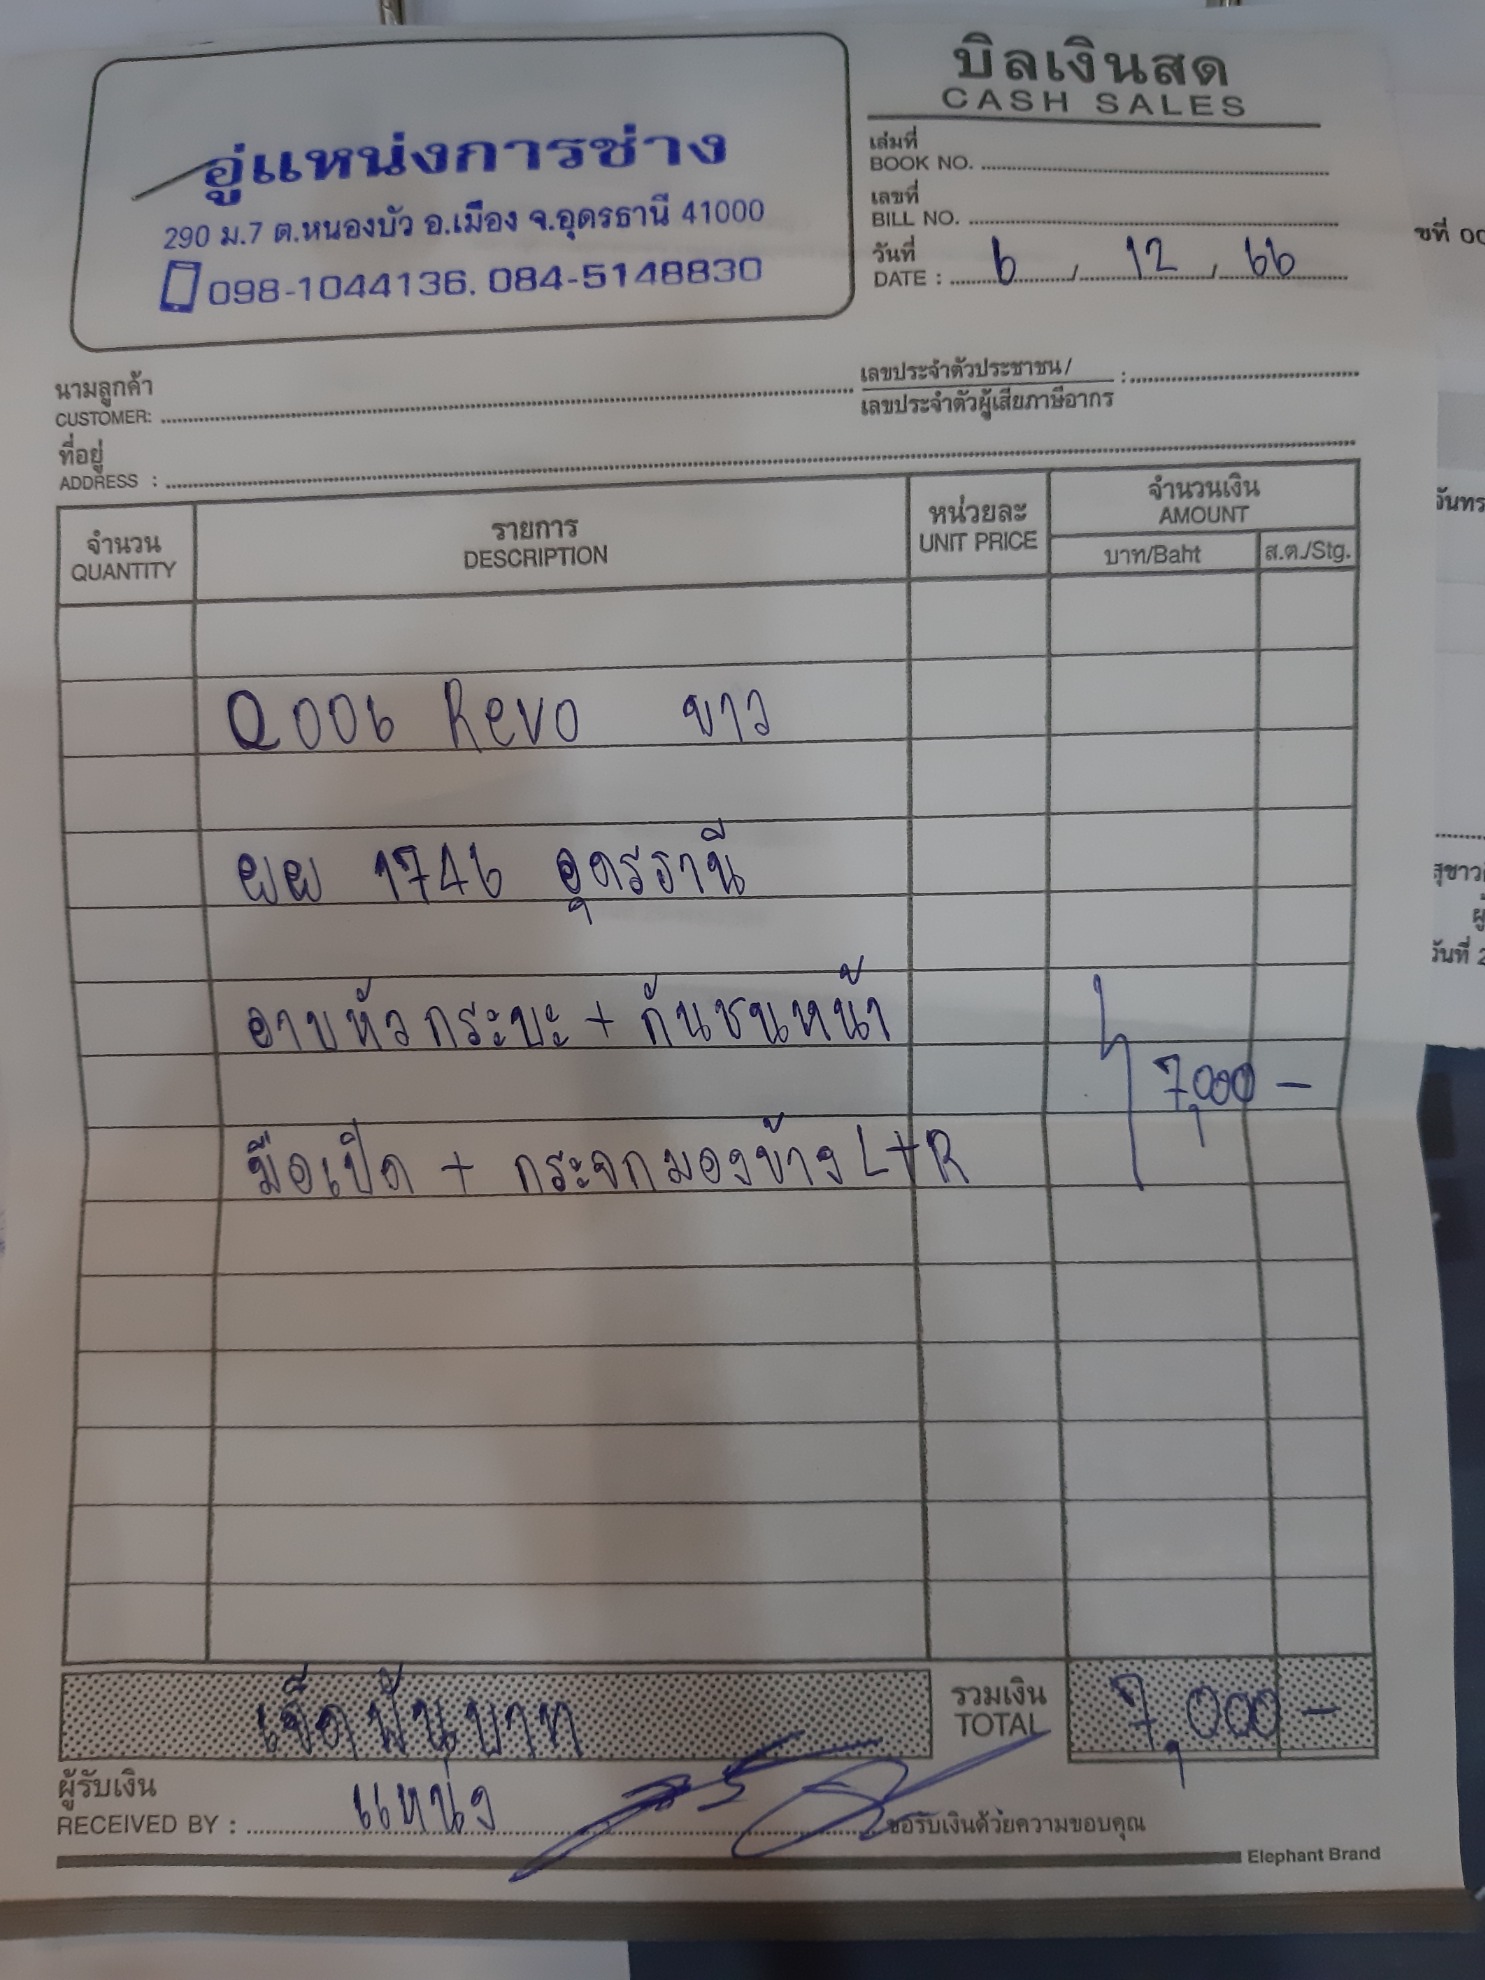 บิลเงินสด
CASH SALES
อู่แหน่งการช่าง
290 ม.7 ต.หนองบัว อ.เมือง จ.อุดรธานี 41000
098-1044136, 084-5148830
เล่มที่
BOOK NO.
เลขที่
BILL NO.
วันที่
DATE : 6 / 12 / 66
ขที่ 00
นามลูกค้า
CUSTOMER:
เลขประจำตัวประชาชน/
เลขประจำตัวผู้เสียภาษีอากร :
ที่อยู่
ADDRESS :
จำนวน
QUANTITY
รายการ
DESCRIPTION
หน่วยละ
UNIT PRICE
จำนวนเงิน
AMOUNT
บาท/Baht ส.ต./Stg.
Q006 Revo ขาว
ผผ 1746 อุดรธานี
อาบหัวกระบะ + กันชนหน้า
7,000 -
มือเปิด + กระจกมองข้าง L+R
เจ็ดพันบาท
รวมเงิน
TOTAL
7,000 -
ผู้รับเงิน
RECEIVED BY : แหน่ง
ขอรับเงินด้วยความขอบคุณ
Elephant Brand